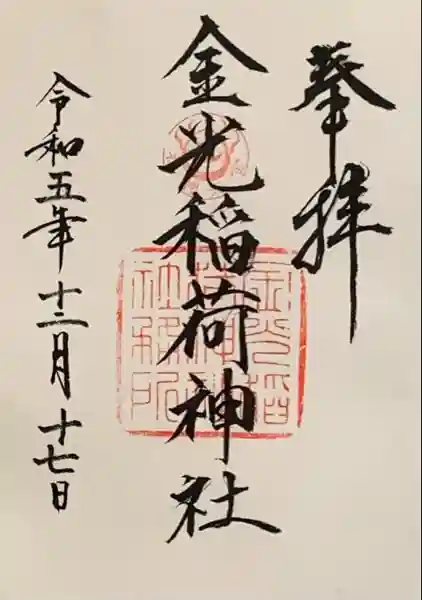 奉拝
金光稲荷神社
令和五年十二月十七日
金光稲荷神社社務所